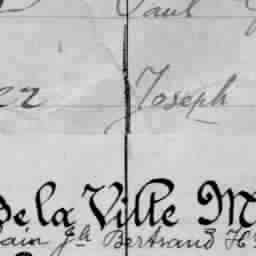 Paul
22 Joseph
De la Ville M
ain Jh Bertrand H